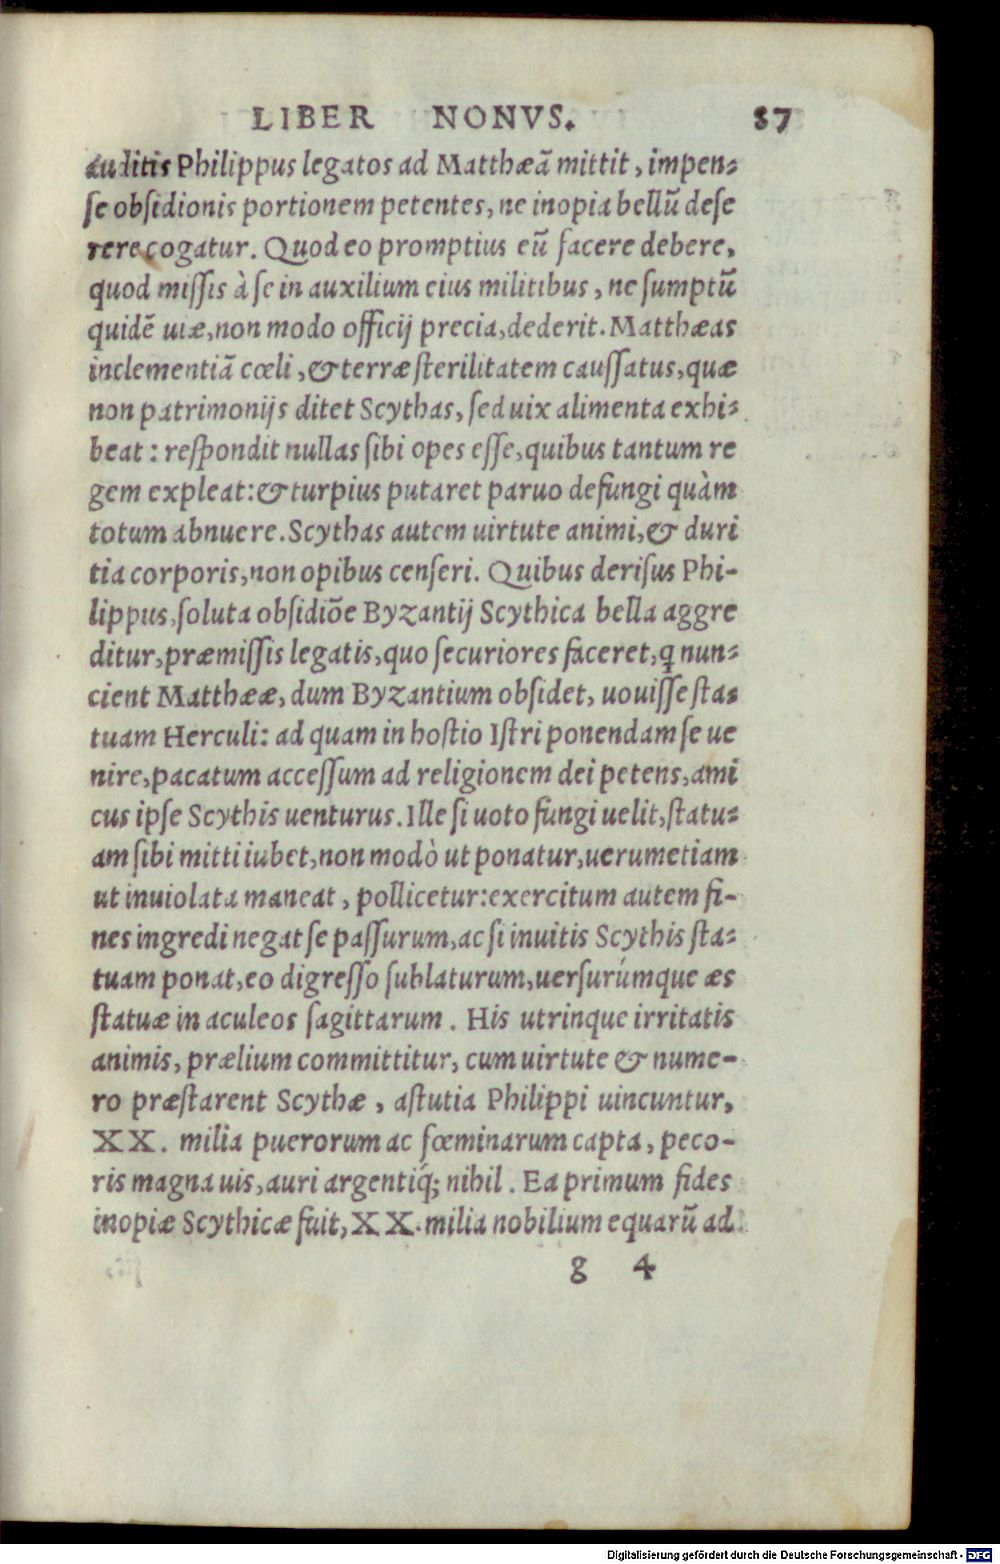 LIBER NONVS. 87
auditis Philippus legatos ad Matthæã mittit, impen-
se obsidionis portionem petentes, ne inopia bellũ dese
rere cogatur. Quod eo promptius eũ facere debere,
quod missis à se in auxilium eius militibus, ne sumptũ
quidẽ uiæ, non modo officij precia, dederit. Matthæas
inclementiã cœli, & terræ sterilitatem caussatus, quæ
non patrimonijs ditet Scythas, sed uix alimenta exhi-
beat: respondit nullas sibi opes esse, quibus tantum re
gem expleat: & turpius putaret paruo defungi quàm
totum abnuere. Scythas autem uirtute animi, & duri
tia corporis, non opibus censeri. Quibus derisus Phi-
lippus, soluta obsidiõe Byzantij Scythica bella aggre
ditur, præmissis legatis, quo securiores faceret, q nun-
cient Matthææ, dum Byzantium obsidet, uouisse sta-
tuam Herculi: ad quam in hostio Istri ponendam se ue
nire, pacatum accessum ad religionem dei petens, ami
cus ipse Scythis uenturus. Ille si uoto fungi uelit, statu-
am sibi mitti iubet, non modò ut ponatur, uerumetiam
ut inuiolata maneat, pollicetur: exercitum autem fi-
nes ingredi negat se passurum, ac si inuitis Scythis sta-
tuam ponat, eo digresso sublaturum, uersurúmque æs
statuæ in aculeos sagittarum. His utrinque irritatis
animis, prælium committitur, cum uirtute & nume-
ro præstarent Scythæ, astutia Philippi uincuntur,
XX. milia puerorum ac fœminarum capta, peco-
ris magna uis, auri argentiq́; nihil. Ea primum fides
inopiæ Scythicæ fuit, XX. milia nobilium equarũ ad
g 4
Digitalisierung gefördert durch die Deutsche Forschungsgemeinschaft - DFG